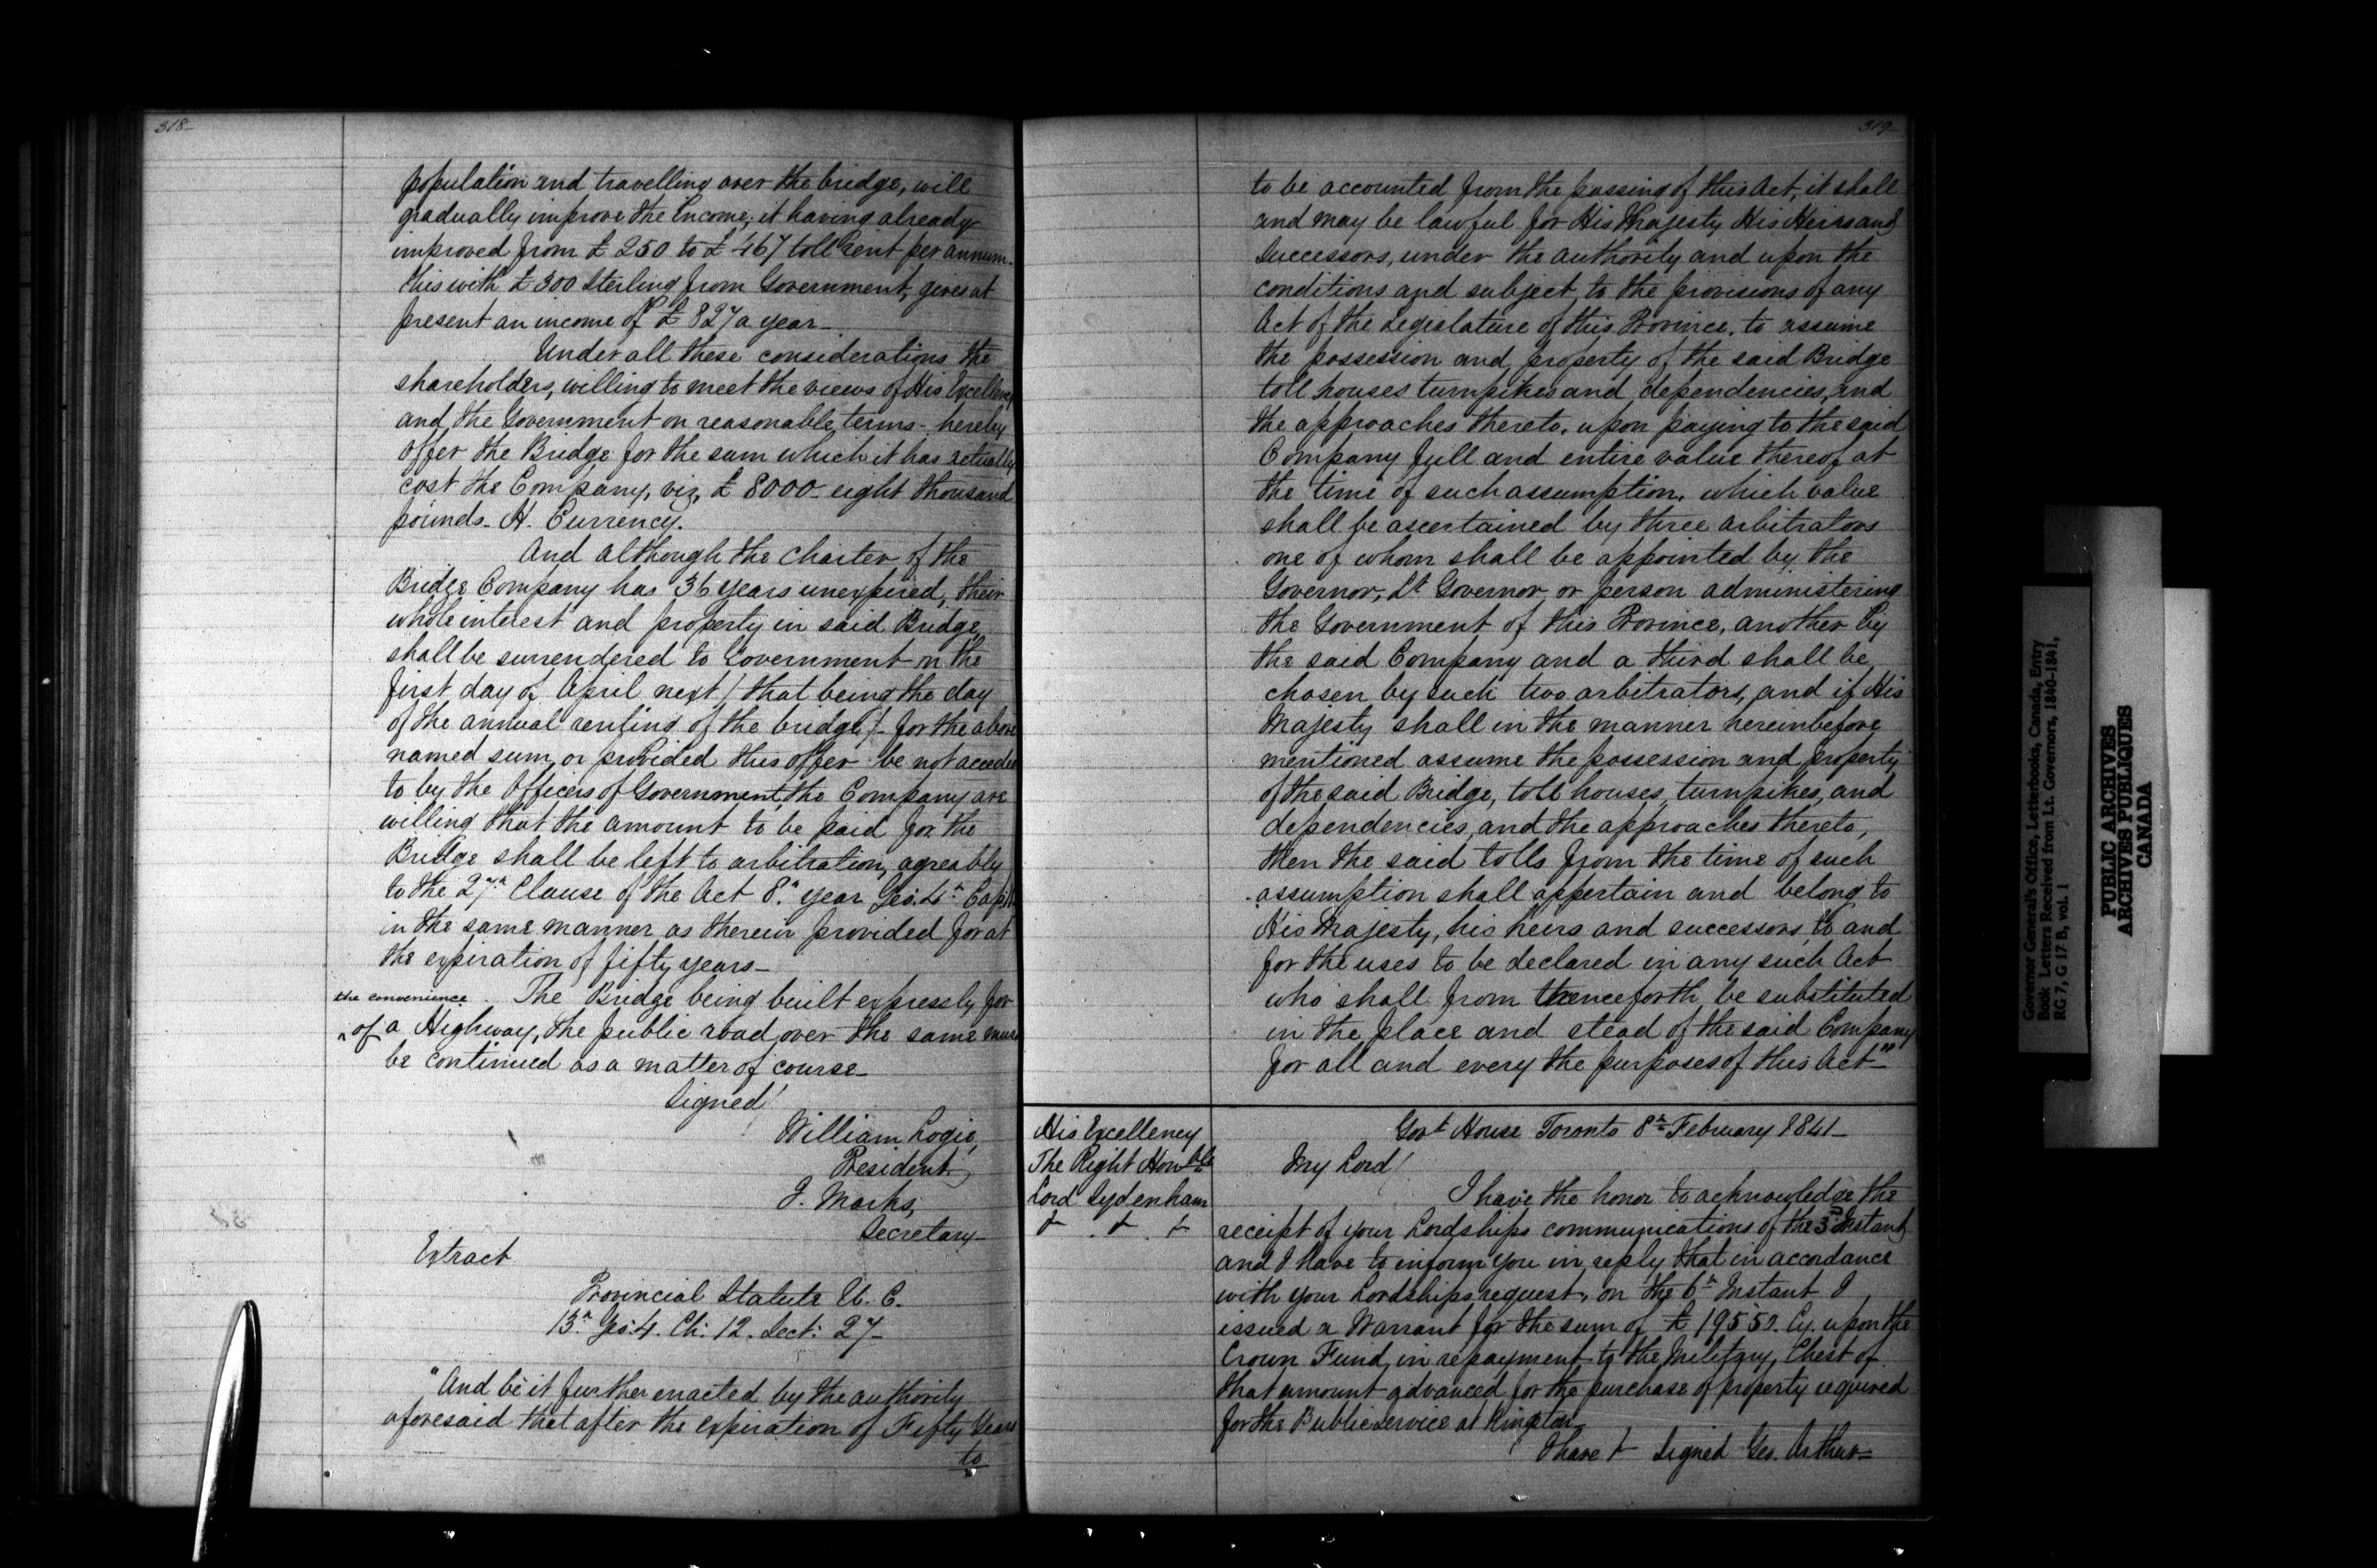 318-
population and travelling over the bridge, will
gradually improve the Income, it having already
improved from £250 to £467 toll rent per annum-
this with £300 Sterling from Government, gives at
present an income of £827 a year-
Under all these considerations the
shareholders, willing to meet the views of His Excellency
and the Government on reasonable terms- hereby
offer the Bridge for the sum which it has actually
cost the Company, viz, £8000- eight thousand
pounds- H. Currency.
And although the Charter of the
Bridge Company has 36 years unexpired, their
whole interest and property in said Bridge
shall be surrendered to Government on the
first day of April next/ that being the day
of the annual renting of the bridge/- for the above
named sum, or provided this offer be not acceded
to by the Officers of Government, the Company are
willing that the amount to be paid for the
Bridge shall be left to arbitration, agreably
to the 27th Clause of the Act 8th year Geo. 4th
in the same manner as therein provided for at
the expiration of fifty years-
The Bridge being built expressly for
the convenience
of a Highway, the public road over the same must
be continued as a matter of course-
Signed/
William Logie,
President
J. Marks,
Secretary-
Extract
Provincial Statute U. C.
13th Geo: 4. Ch: 12. Sect: 27-
"And be it further enacted by the authority
aforesaid that after the expiration of Fifty Years
to
319-
to be accounted from the passing of this Act, it shall
and may be lawful for His Majesty His Heirs and
Successors, under the authority and upon the
conditions and subject to the provisions of any
Act of the Legislature of this Province, to assume
the possession and property of the said Bridge
toll houses turnpikes and dependencies, and
the approaches thereto, upon paying to the said
Company full and entire value thereof at
the time of such assumption, which value
shall be ascertained by three arbitrators
one of whom shall be appointed by the
Governor, Lt Governor or person administering
the Government of this Province, another by
the said Company and a third shall be
chosen by such two arbitrators, and if His
Majesty shall in the manner hereinbefore
mentioned assume the possession and property
of the said Bridge, toll houses, turnpikes, and
dependencies, and the approaches thereto,
then the said tolls from the time of such
assumption shall appertain and belong to
His Majesty, his heirs and successors, to and
for the uses to be declared in any such Act
who shall from thenceforth be substituted
in the place and stead of the said Company
for all and every the purposes of this Act-"
His Excellency
The Right Honble
Lord Sydenham
&. &. &
Govt House Toronto 8th February 1841-
My Lord/
I have the honor to acknowledge the
receipt of your Lordships communications of the 3rd Instant
and I have to inform you in reply that in accordance
with your Lordships request, on the 6th Instant I
issued a Warrant for the sum of Cy. upon the
Crown Fund, in repayment to the Military Chest of
that amount advanced for the purchase of property required
for the Public service at Kingston
I have & Signed Geo. Arthur-
Governor General's Office, Letterbooks, Canada, Entry
Book Letters Received from Lt. Governors, 1840-1841,
RG 7, G 17 B, vol. 1
PUBLIC ARCHIVES
ARCHIVES PUBLIQUES
CANADA